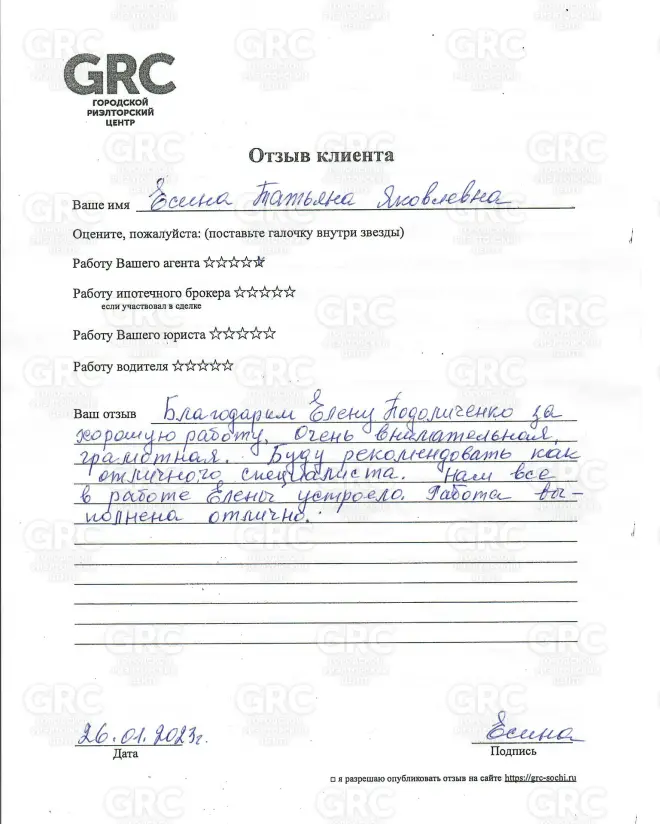 GRC
ГОРОДСКОЙ
РИЭЛТОРСКИЙ
ЦЕНТР
Отзыв клиента
Ваше имя Есина Татьяна Яковлевна
Оцените, пожалуйста: (поставьте галочку внутри звезды)
Работу Вашего агента ☆☆☆☆☆
Работу ипотечного брокера ☆☆☆☆☆
если участвовал в сделке
Работу Вашего юриста ☆☆☆☆☆
Работу водителя ☆☆☆☆☆
Ваш отзыв Благодарим Елену Подоличенко за
хорошую работу. Очень внимательная,
грамотная. Буду рекомендовать как
отличного специалиста. Нам все
в работе Елены устроело. Работа вы-
полнена отлично.
26.01.2023г. Есина
Дата Подпись
□ я разрешаю опубликовать отзыв на сайте https://grc-sochi.ru